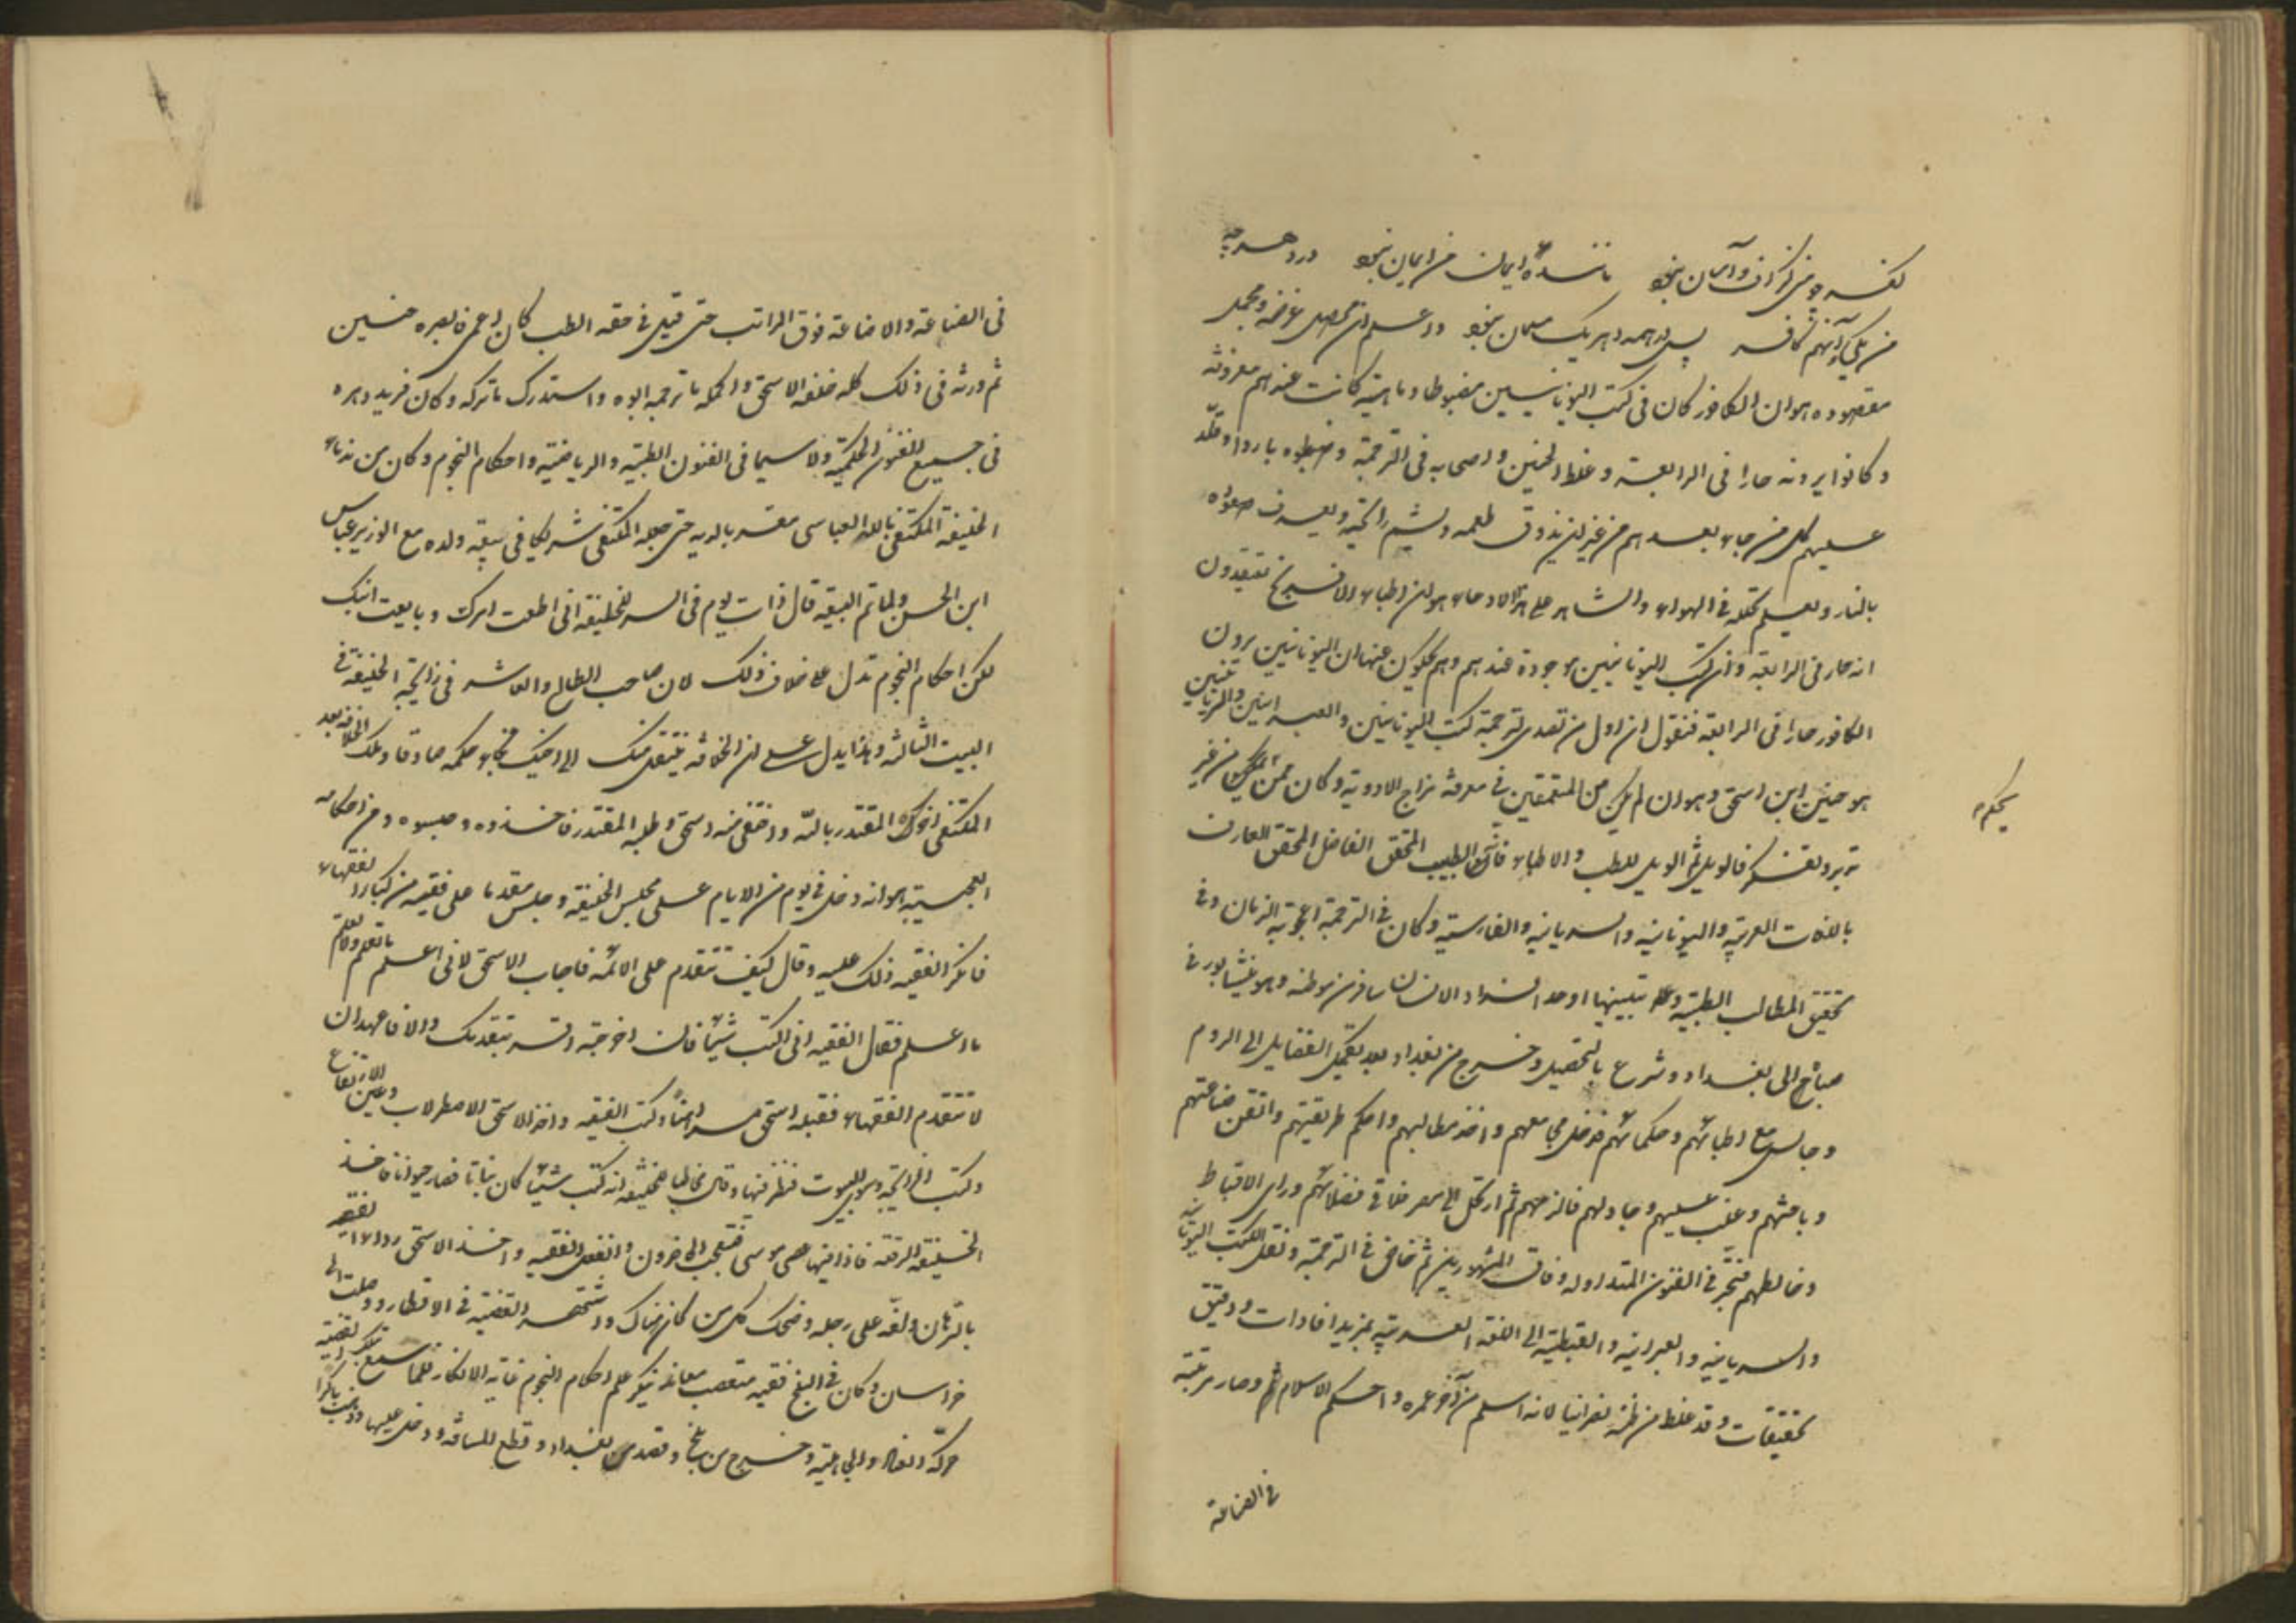 كفر چو منى گزاف و آسان نبود ايمان من ايمان نبود در دهر چو
من يكى و آنهم كافر پس در همه دهر يك مسلمان نبود و اعلم ان محصل غرضه و مجمل
مقصوده هو ان الكافور كان فى كتب اليونانيين مضبوطا و ماهيته كانت عندهم معروفة
و كانوا يرونه حارا فى الرابعة و غلط الحنين و اصحابه فى الترجمة و ضبطوه باردا و قلّد
عليهم كل من جاء بعدهم من غير ان يذوق طعمه و يشم رائحته و يعرف صعوده
بالنار و يعلم تحلله فى الهواء و الشاهد على هذا الادعاء هو ان اطباء الافرنج يعتقدون
انه حار فى الرابعة و ان كتب اليونانيين موجودة عندهم و هم يحكون عنها ان اليونانيين يرون
الكافور حارا فى الرابعة فنقول ان اول من تصدى لترجمة كتب اليونانيين و العبرانيين و السريانيين
هو حنين ابن اسحق و هو ان لم يكن من المتعمقين فى معرفة مزاج الادوية و كان ممن يحكم من غير
يحكم
تدبر و تفكر فالويل ثم الويل للطب و الاطباء فانه الطبيب المحقق الفاضل المحقق العارف
باللغات العربية و اليونانية و السريانية و الفارسية و كان فى الترجمة اعجوبة الزمان و فى
تحقيق المطالب الطبية و تبيينها اوحد افراد الانسان سافر من موطنه و هو نيشابور فى
صباه الى بغداد و شرع بالتحصيل و خرج من بغداد بعد تكميل الفضايل الى الروم
و جالس مع اطبائهم و حكمائهم فدخل مجامعهم و اخذ مطالبهم و احكم طريقتهم و اتقن صناعتهم
و باحثهم و غلب عليهم و جادلهم فالزمهم ثم ارتحل الى مصر فلاقى فضلائهم و راى الاقباط
و خالطهم فتبحّر فى الفنون المتداوله و فاق المشهورين ثم خاض فى الترجمة و نقل الكتب اليونانية
و السريانية و العبرانية و القبطية الى اللغة العربية بمزيد افادات و دقيق
تحقيقات و قد غلط من ظنه نصرانيا لانه اسلم من آخر عمره و احكم الاسلام ثم و صار مرتبته
فى الصناعة
فى الصناعة و الاضاعة فوق المراتب حتى قيل فى حقه الطب كان اعمى فابصره حنين
ثم ورثه فى ذلك كله خلفه الاسحق و اكمله ما ترجمه ابوه و استدرك ما تركه و كان فريد دهره
فى جميع الفنون الحكمية و لا سيما فى الفنون الطبية و الرياضية و احكام النجوم و كان من ندماء
الخليفة المكتفى بالله العباسى مقربا لديه حتى جعله المكتفى شريكا فى بيعة ولده مع الوزير عباس
ابن الحسن و لما تم البيعة قال ذات يوم فى السر للخليفة انى اطعت امرك و بايعت ابنك
لكن احكام النجوم تدل على خلاف ذلك لان صاحب الطالع و العاشر فى زائجة الخليفة فى
البيت الثالث و هذا يدل على ان الخلافة ينتقل منك الى اخيك فجاء حكمه صادقا و ملك الخلافة بعد
المكتفى اخوه المقتدر بالله و اختفى منه اسحق و طلبه المقتدر فاخذوه و حبسوه و من احكامه
العجيبة هو انه دخل فى يوم من الايام على مجلس الخليفة و جلس مقدما على فقيه من كبار الفقهاء
فانكر الفقيه ذلك عليه و قال كيف تتقدم على الائمة فاجاب الاسحق لانى اعلم ما تعلم و لا تعلم
ما اعلم فقال الفقيه انى اكتب شيئا فان اخرجته اقر بتقدمك و الا فاعهد ان
لا تتقدم الفقهاء فقبله اسحق و كتب الفقيه و اخذ الاسحق الاصطرلاب و عين الارتفاع
و كتب الزائجة و سوى البيوت فنظر فيها و قال مخاطبا للخليفة انه كتب شيئا كان نباتا فصار حيوانا فاخذ
الخليفة الرقعة فاذا فيها عصى موسى فتعجب الحاضرون و انفعل الفقيه و اخذ الاسحق رداء الفقيه
بالرهان و لفه على رجله و ضحك كل من كان هناك و اشتهر القضية فى الاقطار و وصلت الى
خراسان و كان فى البلخ فقيه متعصب معاند ينكر علم احكام النجوم غاية الانكار فلما سمع تلك القضية
حركه العناد و الجاهلية و خرج من بلخ و قصد من بغداد و قطع المسافة و دخل عليها و ذهب باكرا